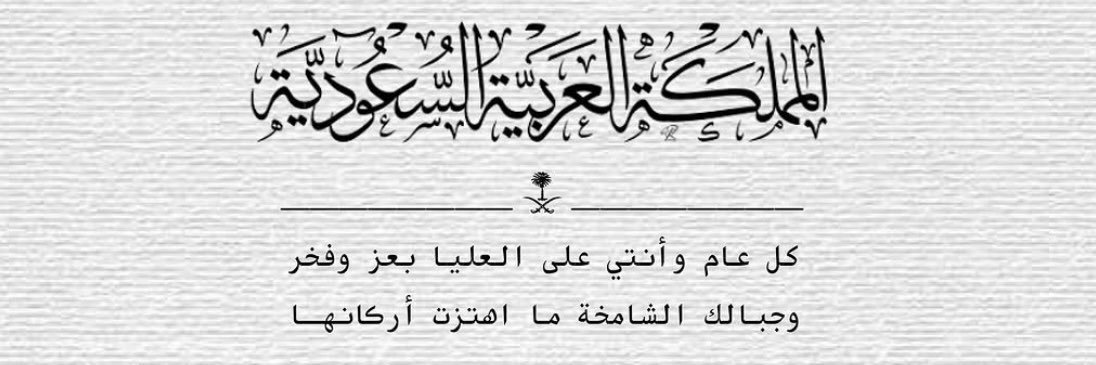 المملكة العربية السعودية
كل عام وأنتي على العليا بعز وفخر
وجبالك الشامخة ما اهتزت أركانهــا